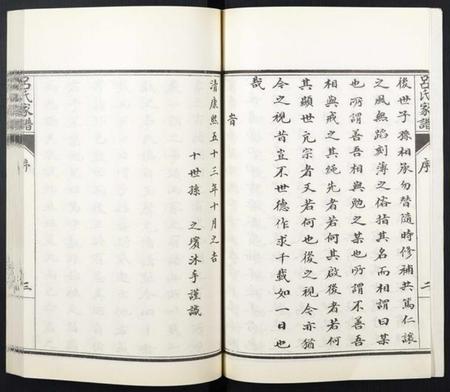 呂氏家譜
序
二
後世子孫相承勿替隨時修補共篤仁讓
之風無蹈刻薄之俗指其名而相謂曰某
也所謂善吾相與勉之某也所謂不善吾
相與戒之其純先者若何其啟後者若何
其顯世亢宗者又若何也後之視今亦猶
今之視昔豈不世德作求千載如一日也
哉
旹
清康熙五十三年十月之吉
十世孫 之璸沐手謹識
呂氏家譜
序
三